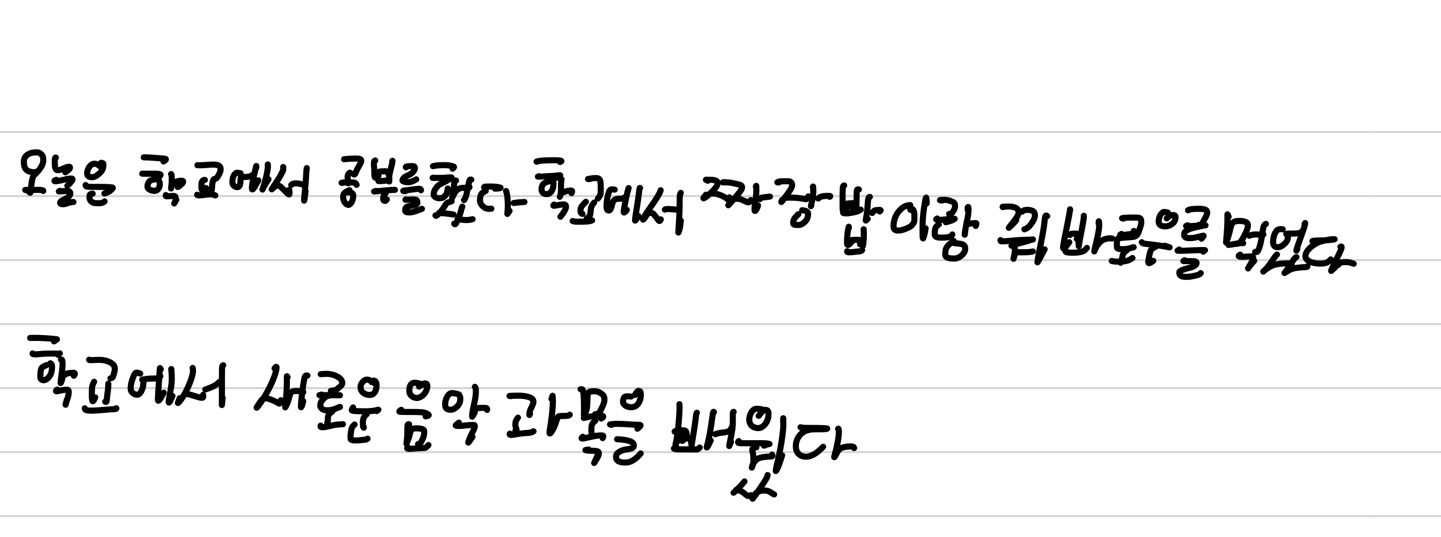 오늘은 학교에서 공부를했다 학교에서 짜장밥이랑 꿔바로우를 먹었다
학교에서 새로운 음악 과목을 배웠다